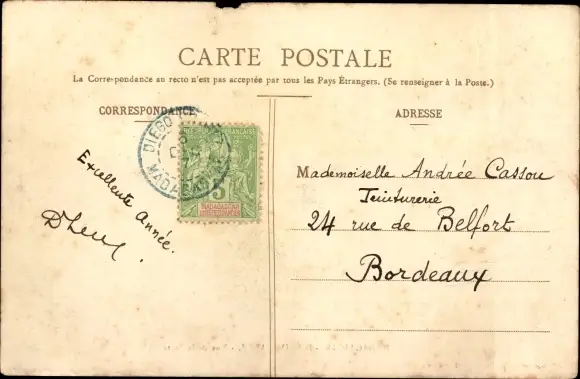 CARTE POSTALE
La Correspondance au recto n'est pas acceptée par tous les Pays Étrangers. (Se renseigner à la Poste.)
CORRESPONDANCE
ADRESSE
DIEGO
MADAGASCAR
FRANÇAISE
5
MADAGASCAR
Excellente Année.
Mademoiselle Andrée Cassou
Teinturerie
24 rue de Belfort
Bordeaux